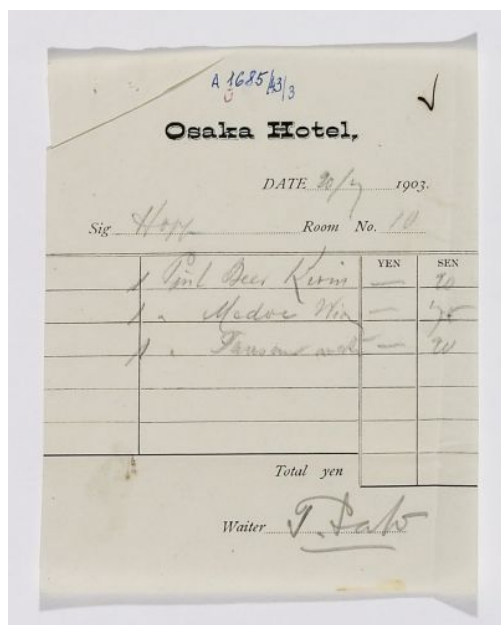 A 1685/43/3
Osaka Hotel,
DATE 20/7 1903.
Sig Hopp Room No. 10
YEN SEN
1 Pint Beer Kirin —
1 " Medoc —
1 " —
Total yen
Waiter T. Sato